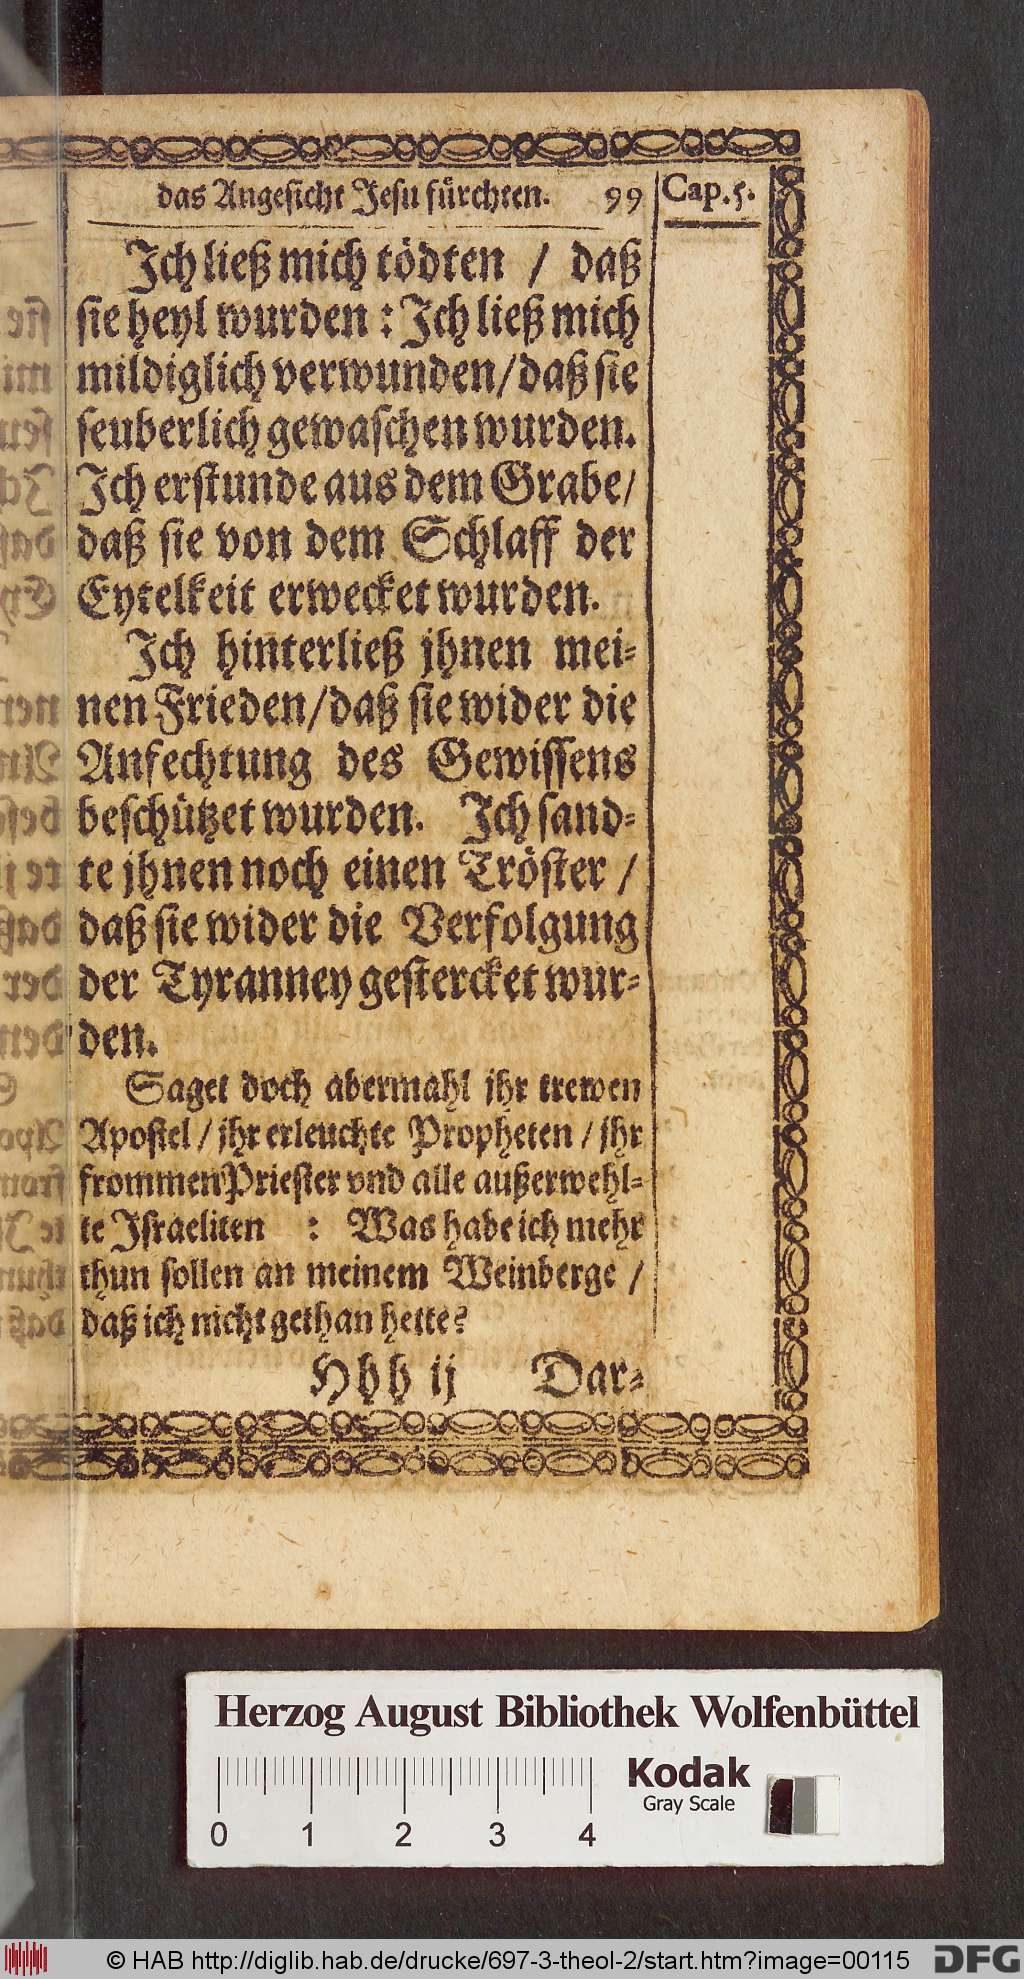 das Angesicht Jesu fürchten. 99 Cap. 5.
Jch ließ mich tödten / daß
sie heyl wurden : Jch ließ mich
mildiglich verwunden/daß sie
seuberlich gewaschen wurden.
Jch erstunde aus dem Grabe/
daß sie von dem Schlaff der
Eytelkeit erwecket wurden.
Jch hinterließ jhnen mei-
nen Frieden/daß sie wider die
Anfechtung des Gewissens
beschützet wurden. Jch sand-
te jhnen noch einen Tröster /
daß sie wider die Verfolgung
der Tyranney gestercket wur-
den.
Saget doch abermahl jhr trewen
Apostel / jhr erleuchte Propheten / jhr
frommen Priester vnd alle außerwehl-
te Jsraeliten : Was habe ich mehr
thun sollen an meinem Weinberge /
daß ich nicht gethan hette?
Hhh ij Dar-
Herzog August Bibliothek Wolfenbüttel
Kodak
Gray Scale
0 1 2 3 4
© HAB http://diglib.hab.de/drucke/697-3-theol-2/start.htm?image=00115 DFG